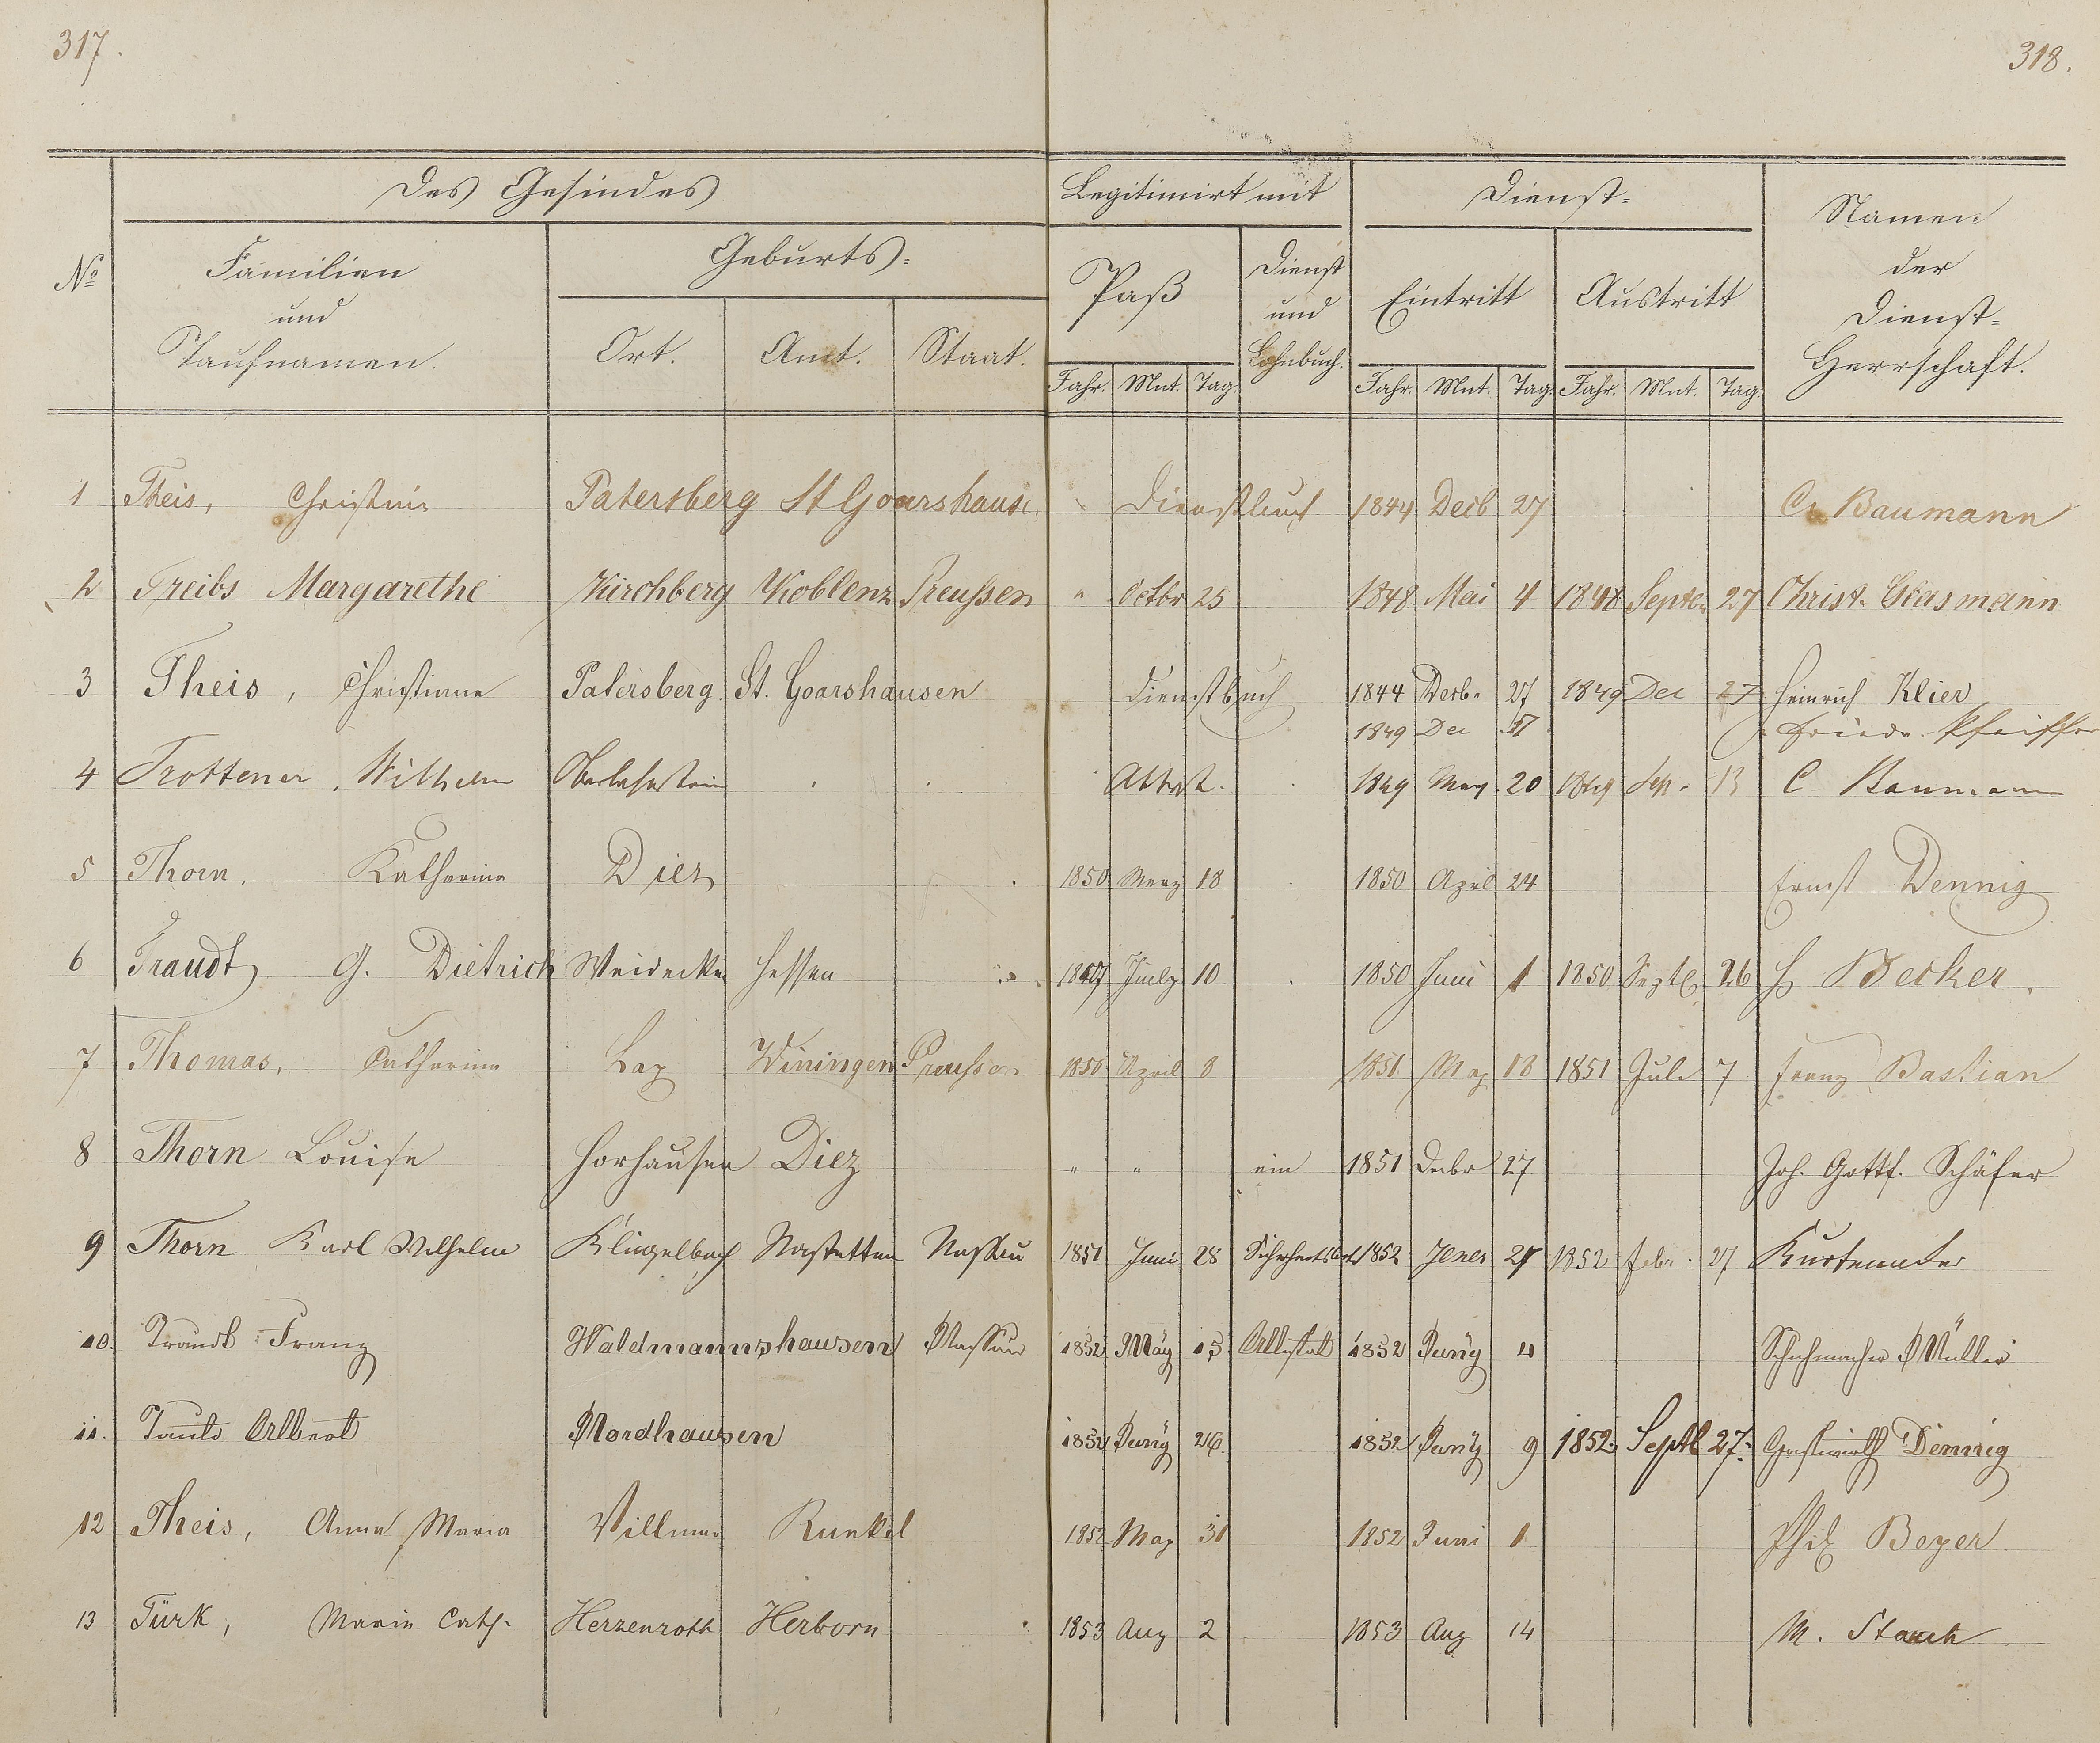 317.
318.
Des Gesindes
Legitimirt mit
Dienst-
Namen der Dienst-Herrschaft.
No
Familien und Taufnamen.
Geburts-
Paß
Dienst und Lohnbuch.
Eintritt
Austritt
Ort. Amt. Staat.
Jahr. Mnt. Tag. Jahr. Mnt. Tag. Jahr. Mnt. Tag.
1 Theis, Christine Patersberg St Goarshause " Dienstbuch 1844 Decb 27 Baumann
2 Treibs Margarethe Kirchberg Koblenz Preußen " Octbr 25 1848 Mai 4 1848 Septb 27 Christ.
3 Theis, Christiane Patersberg St. Goarshausen Dienstbuch 1844 Decbr 27 1849 Dec 27 Heinrich Klier
1849 Dec 27 Friedr. Pfeiffer
4 Trottener, Wilhelm Oberlahnstein Attest. 1849 May 20 1849 Sep. 13 C Baumann
5 Thorn, Katharina Diez 1850 Merz 18 1850 April 24 Ernst Dennig
6 Traudt G. Dietrich Hessen 10 1850 Juni 1 1850 Septb 26 Becker.
7 Thomas, Catharina Lay Winingen Preussen 1850 April 8 1851 May 18 1851 Juli 7 Franz Bastian
8 Thorn Louise Horhausen Diez " " ein 1851 Decbr 27 Joh. Gottf. Schäfer
9 Thorn Karl Wilhelm Klingelbach Nastätten Nassau 1851 Juni 28 1852 27 1852 Febr. 27
10. Traudt Franz Waldmannshausen Nassau 1852 May 15 Attestat 1852 Juny 4 Schuhmacher Müller
11. Albert Nordhausen 1852 Juny 26. 1852 Juny 9 1852. Septb 27. Gastwirth Dennig
12 Theis, Anna Maria Villmar Runkel 1852 May 31 1852 Juni 1 Phil Beyer
13 Türk, Maria Cath. Herzenroth Herborn 1853 Aug 2 1853 Aug 14 M. Stauch